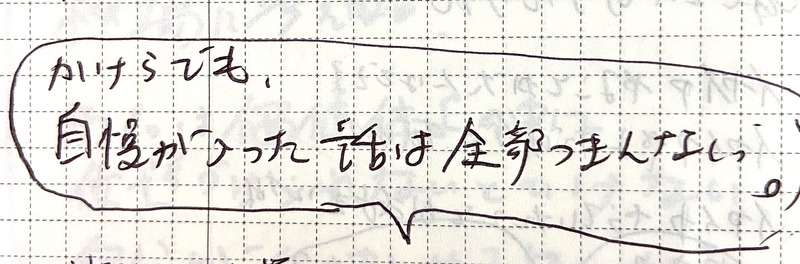 かけらでも、
自慢が入った話は全部つまんなしっ。